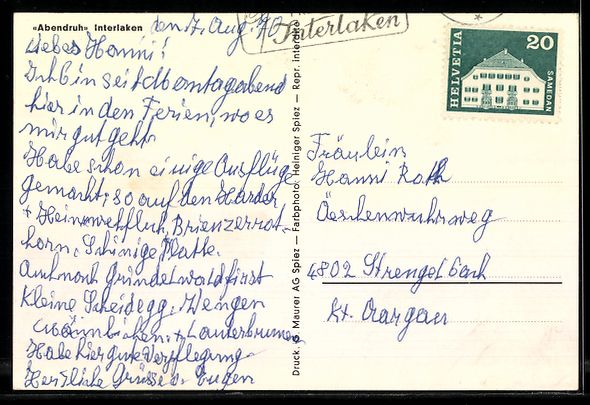 «Abendruh» Interlaken
den 17. Aug. 70
Liebes Hanni!
Ich bin seit Montagabend
hier in den Ferien, wo es
mir gut geht.
Habe schon einige Ausflüge
gemacht; so auf den Harder
+ Heimwehfluh, Brienzerrot-
horn, Schinige Platte.
Auch nach Grindelwald first
Kleine Scheidegg. Wengen
+ Lauterbrunnen
Habe hier gute Verpflegung.
Herzliche Grüsse Eugen
Druck. Maurer AG Spiez — Farbphoto. Heiniger Spiez — Repr. interdite
Interlaken
HELVETIA
20
SAMEDAN
Fräulein
Hanni Roth
Äeschenwuhrweg
4802 Strengelbach
Kt. Aargau